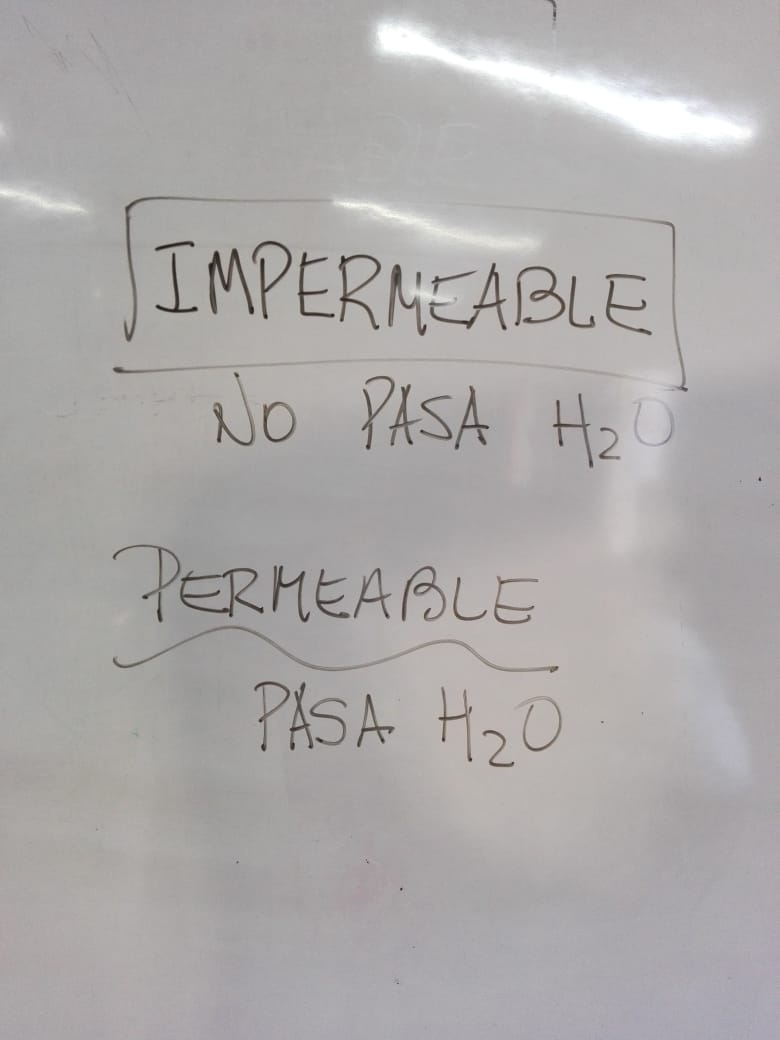 IMPERMEABLE
NO PASA H₂O
PERMEABLE
PASA H₂O